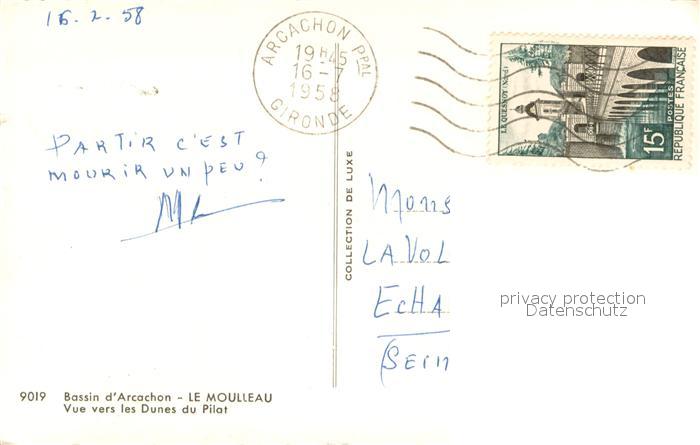 16.2.58
ARCACHON PPAL
19H45
16-7
1958
GIRONDE
LE QUESNOY (Nord)
POSTES
15F
REPUBLIQUE FRANÇAISE
PARTIR C'EST
MOURIR UN PEU ?
COLLECTION DE LUXE
Mons
LAVOL
ECHA
(SEIN
privacy protection
Datenschutz
9019 Bassin d'Arcachon - LE MOULLEAU
Vue vers les Dunes du Pilat